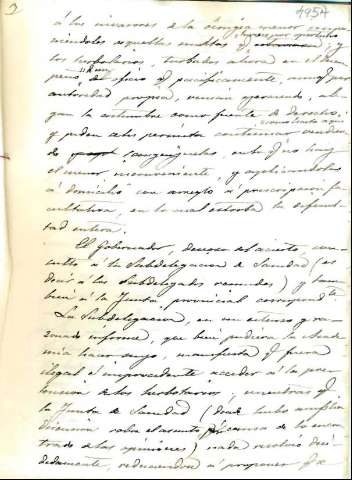 2
4954
á los invasores de la cirugía menor
aquellas multas y
los herbolarios, turbados ahora en el
de oficio q. pacíficamente, aunq. por
autoridad propia, venían ejerciendo, ale
gan la costumbre como fuente de derecho,
y piden se les permita continuar vendien
do sanguijuelas, en lo q. no hay
el menor inconveniente, y aplicándolas
á domicilio con arreglo á prescripción fa
cultativa, en lo cual estriba la dificul
tad entera.
El Gobernador, deseoso del acierto, con
sultó á la Subdelegacion de Sanidad (es
decir á los Subdelegados reunidos) y tam
bien á la Junta provincial correspond.te
La Subdelegacion, en un extenso y ra
zonado informe, que bien pudiera la Acade
mia hacer suyo, manifiesta q. fuera
ilegal é improcedente acceder á la pre
tension de los herbolarios, mientras q.
la Junta de Sanidad (donde hubo amplia
discusion sobre el asunto á causa de lo encon
trado de las opiniones) nada resolvió deci
didamente, reduciendose á proponer